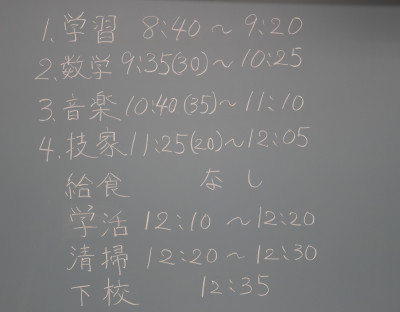 1. 学習 8:40 ~ 9:20
2. 数学 9:35(30)~10:25
3. 音楽 10:40(35)~11:10
4. 技家 11:25(20)~12:05
給食 なし
学活 12:10 ~12:20
清掃 12:20 ~ 12:30
下校 12:35